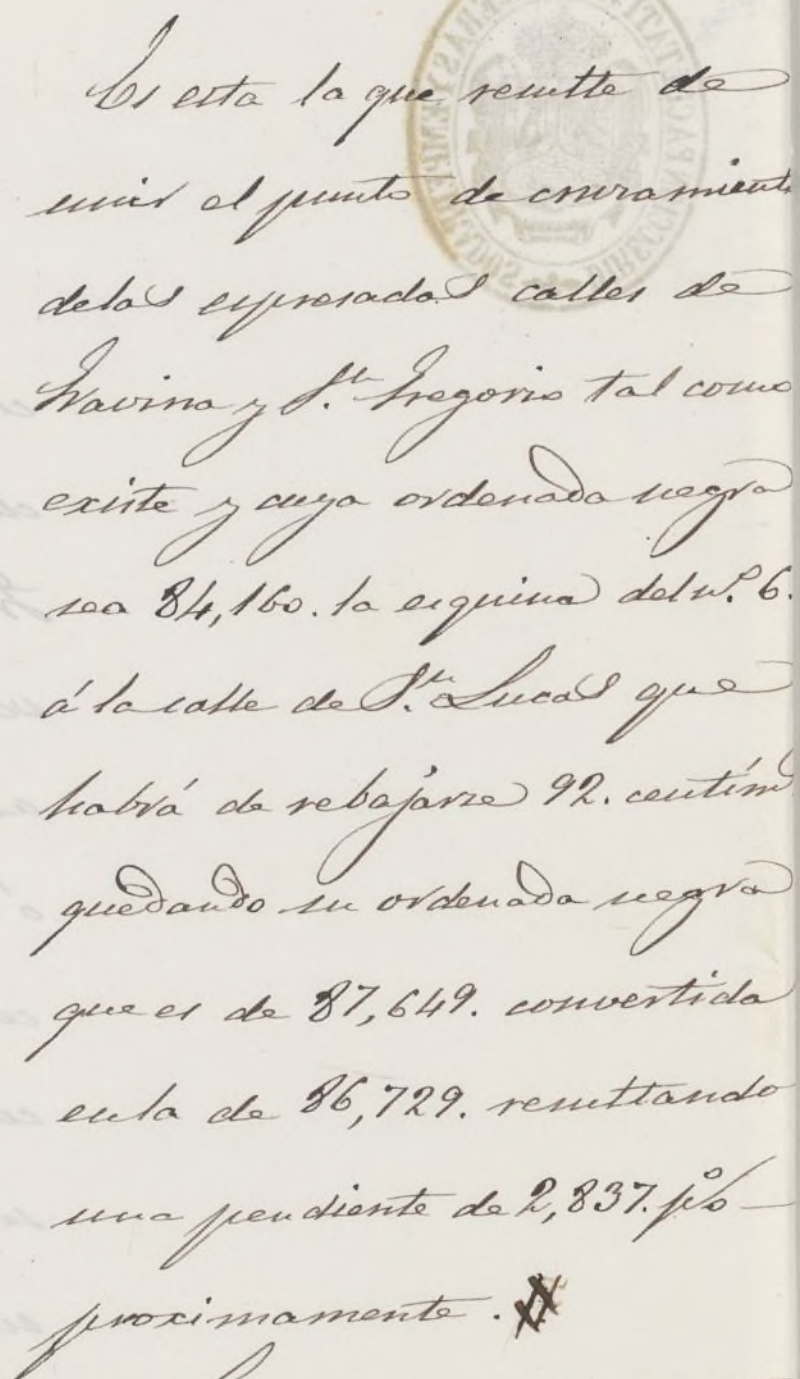 Es esta la que resulte de
unir el punto de cruzamiento
de las espresadas calles de
Gravina y S.ⁿ Gregorio tal como
existe y cuya ordenada negra
sea 84,160. la esquina del n.º 6.
á la calle de S.ⁿ Lucas que
habrá de rebajarse 92. centím
quedando su ordenada negra
que es de 87,649. convertida
en la de 86,729. resultando
una pendiente de 2,837. p%
proximamente.